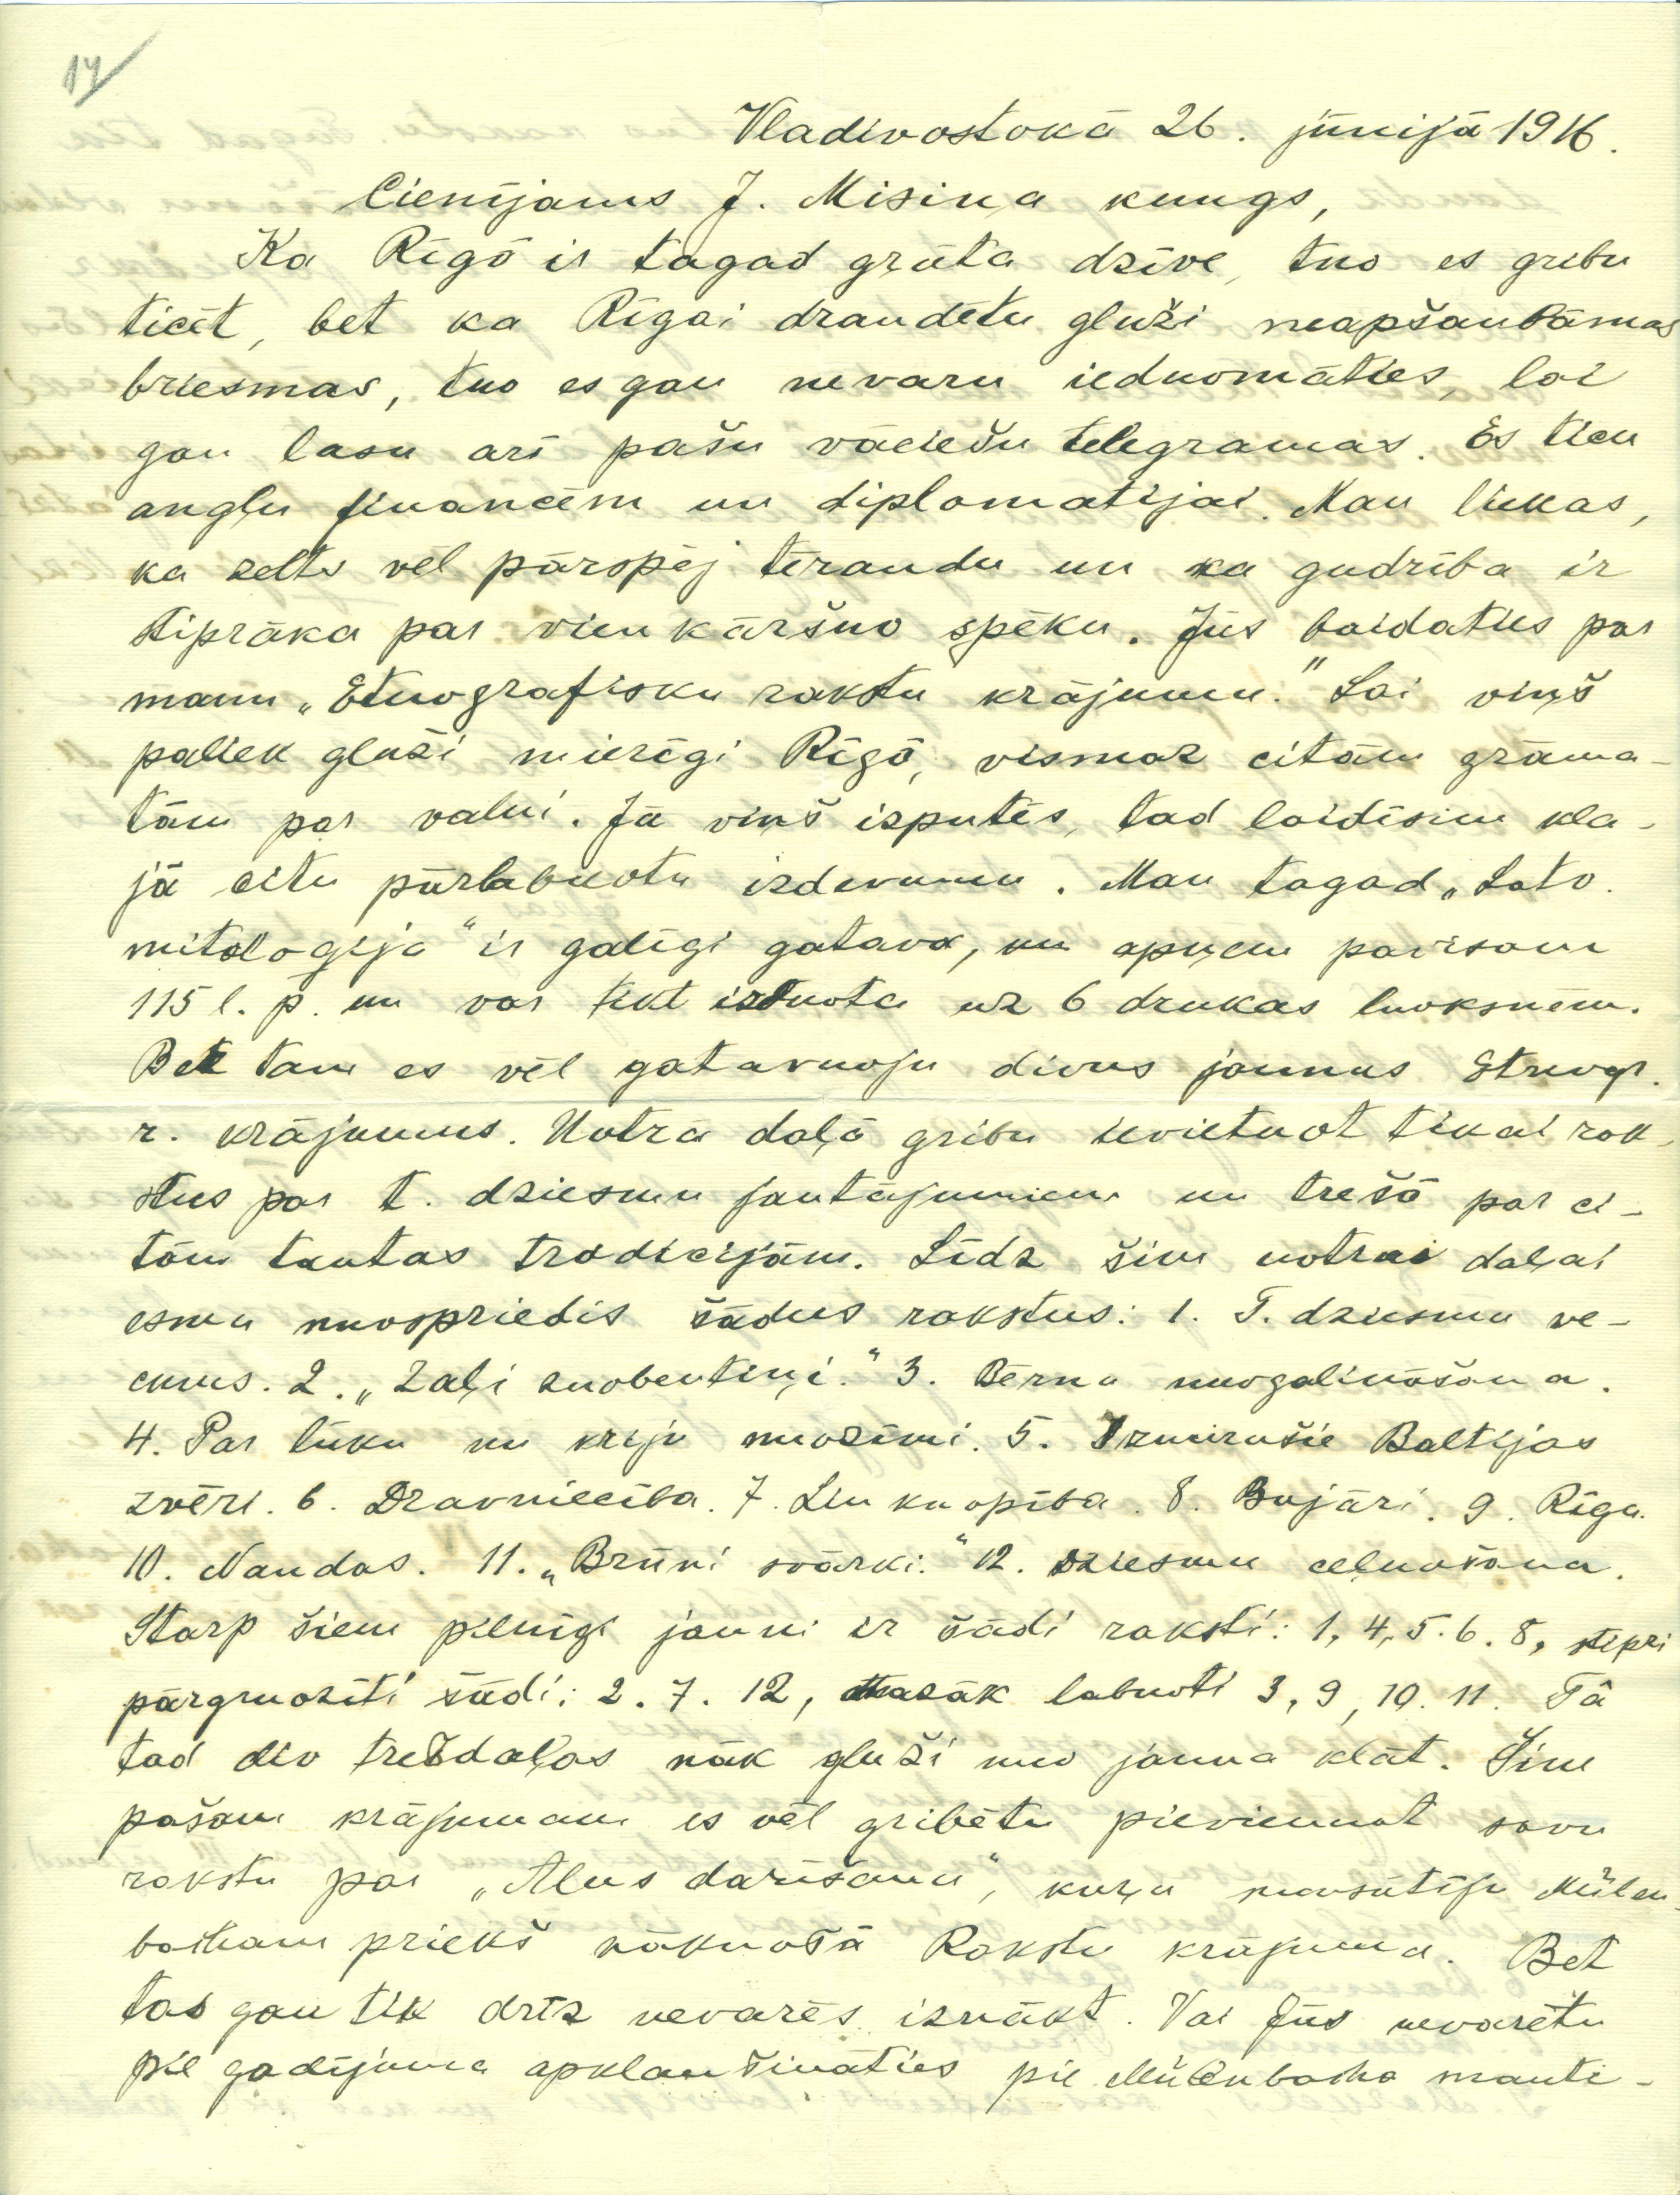 14
Vladivostokā 26. jūnijā 1916.
Cienījams J. Misiņa kungs,
Ka Rīgā ir tagad grūta dzīve, tuo es gribu
ticēt, bet ka Rīgai draudētu gluži neapšaubāmas
briesmas, tuo es gan nevaru ieduomāties, lai
gan lasu arī pašu vāciešu telegramas. Es ticu
angļu financēm un diplomatijai. Man liekas,
ka zelts vēl pārspēj tēraudu un ka gudrība ir
stiprāka par vienkāršuo spēku. Jūs baidaties par
manu „Etnografisku rakstu krājumu." Lai viņš
paliek gluži mierīgi Rīgā, vismaz citām grāma-
tām par valni. Ja viņš izputēs, tad laidīsim kla-
jā citu pārlabuotu izdevumu. Man tagad „Latv.
mitoloģija" ir galīgi gatava, un apņem pavisam
115 l. p. un var tikt izduota uz 6 drukas luoksnēm.
Bet tam es vēl gatavuoju divus jaunus Etnogr.
r. krājumus. Uotrā daļā gribu ievietuot tikai rak-
stus par t. dziesmu jautājumiem un trešā par ci-
tām tautas tradicijām. Līdz šim uotrai daļai
esmu nuospriedis šādus rakstus: 1. T. dziesmu ve-
cums. 2. „Zaļi zuobentiņi." 3. Bērnu nuogalināšana.
4. Par lūku un kriju nuozīmi. 5. Izmirušie Baltijas
zvēri. 6. Dravniecība. 7. Linkuopība. 8. Bajāri. 9. Rīga.
10. Naudas. 11. „Brūni svārki." 12. Dziesmu celšana.
Starp šiem pilnīgi jauni ir šādi raksti: 1, 4, 5. 6. 8, stipri
pārgruozīti šādi: 2. 7. 12, mazāk labuoti 3, 9, 10. 11. Tā
tad div trešdaļas nāk gluži nuo jauna klāt. Šim
pašam krājumam es vēl gribētu pievienuot savu
rakstu par „Alus darīšanu", kuŗu nuosūtīju Mülen-
bacham priekš nākuošā Rakstu krājuma. Bet
tas gan tik drīz nevarēs iznākt. Vai Jūs nevarētu
pie gadījuma apklaušināties pie Mülenbacha manti-